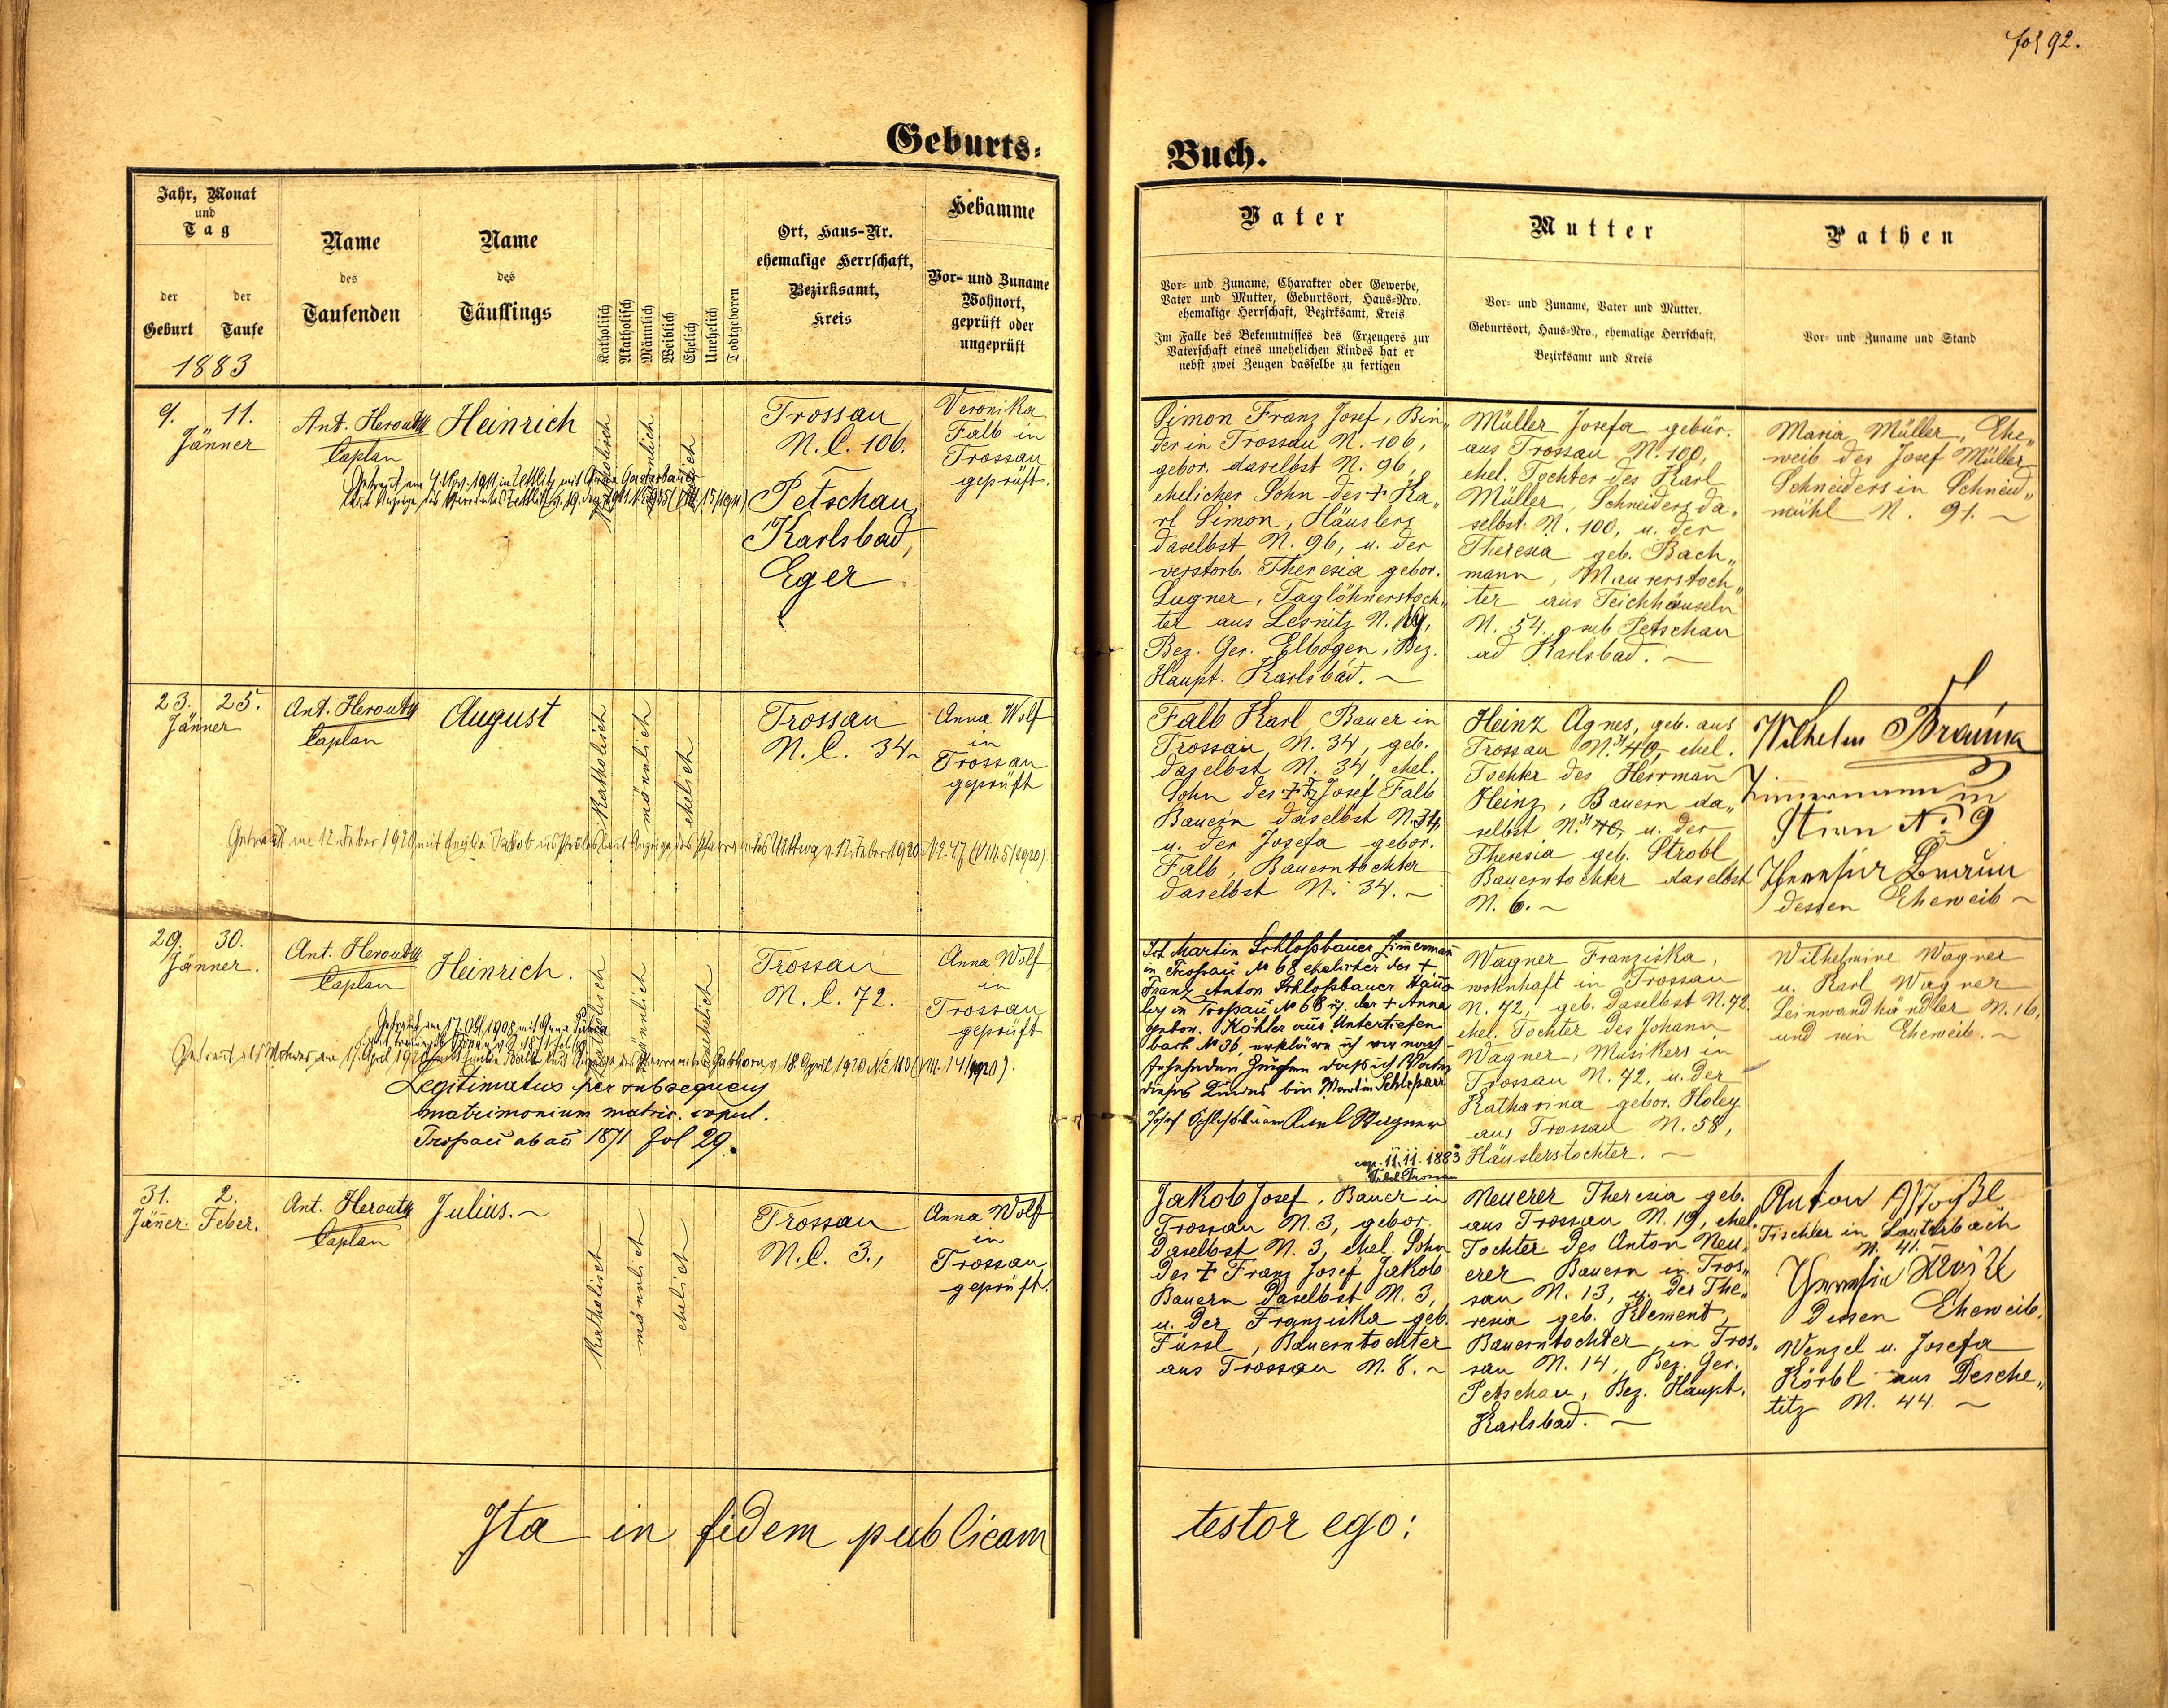 fol 92.
Geburts-
Buch.
Jahr, Monat
und
Tag
der
Geburt
der
Taufe
1883
Name
des
Taufenden
Name
des
Täuflings
Katholisch
Akatholisch
Männlich
Weiblich
Ehelich
Unehelich
Todtgeboren
Ort, Haus-Nr.
ehemalige Herrschaft,
Bezirksamt,
Kreis
Hebamme
Vor- und Zuname
Wohnort,
geprüft oder
ungeprüft
Vater
Vor- und Zuname, Charakter oder Gewerbe,
Vater und Mutter, Geburtsort, Haus-Nro.
ehemalige Herrschaft, Bezirksamt, Kreis
Im Falle des Bekenntnisses des Erzeugers zur
Vaterschaft eines unehelichen Kindes hat er
nebst zwei Zeugen dasselbe zu fertigen
Mutter
Vor- und Zuname, Vater und Mutter.
Geburtsort, Haus-Nro., ehemalige Herrschaft,
Bezirksamt und Kreis
Pathen
Vor- und Zuname und Stand
9. 11.
Jänner
Ant. Heroutn
Caplan
Heinrich
Getraut am
katholisch
männlich
ehelich
Trossau
N.C. 106.
Petschau,
Karlsbad,
Eger
Veronika
Falb in
Trossau
geprüft.
Simon Franz Josef, Bin„
der in Trossau N. 106,
gebor. daselbst N. 96,
ehelicher Sohn des + Ka„
rl Simon, Häuslers
daselbst N. 96, u. der
verstorb. Theresia gebor.
Lugner, Taglöhnerstoch„
ter aus Lesnitz N. 19,
Bez. Ger. Elbogen, Bez.
Haupt. Karlsbad. ~
Müller Josefa gebür.
aus Trossau N. 100,
ehel. Tochter des Karl
Müller, Schneiders da„
selbst N. 100, u. der
Theresia geb. Bach„
mann, Maurerstoch„
ter aus Teichhäuseln
N. 54, sub Petschau
ad Karlsbad. ~
Maria Müller, Ehe„
weib des Josef Müller
Schneiders in Schneid„
mühl N. 91. ~
23. 25.
Jänner
Ant. Heroutn
Caplan
August
katholisch
männlich
ehelich
Trossau
N.C. 34~
Anna Wolf
in
Trossau
geprüft
Getraut am 12. Feber 1920 mit Emilie Jakob aus laut Anzeige des Pfarramtes Uittwa v. 12. Feber 1920 N° 47 (VIII. 5/1920)
Falb Karl Bauer in
Trossau N. 34, geb.
daselbst N. 34, ehel.
Sohn des ++ Josef Falb
Bauern daselbst N. 34,
u. der Josefa gebor.
Falb, Bauerntochter
daselbst N. 34. ~
Heinz Agnes, geb. aus
Trossau N. 31 40, ehel.
Tochter des Herrmañ
Heinz, Bauern da„
selbst N. 31 40, u. der
Theresia geb. Strobl
Bauerntochter daselbst
N. 6. ~
Wilhelm
Zimmermann in
N: 9
dessen Eheweib ~
29. 30.
Jänner.
Ant. Heroutn
Caplan
Heinrich.
katholisch
männlich
unehelich
Trossau
N.C. 72.
Anna Wolf
in
Trossau
geprüft
Getraut am 17. Okt. 1908 mit Anna
Getraut als Witwer am 17. April 1920 mit Emilie laut Anzeige des Pfarramtes v. 18. April 1920 N° 110 (VIII. 14/1920).
Legitimatus per subsequens
matrimonium matric. copul.
Trossau ab ao 1871 fol 29.
Ich Martin Schloßbauer Zimermañ
in Trossau N° 68 ehelicher des +
Franz Anton Schloßbauer Häus
lers in Trossau N° 68 u. der + Anna
gebor. Köhler aus Untertiefen
bach N° 36, erkläre ich vor nach-
stehenden Zeugen daß ich Vater
dieses Kindes bin Martin Schloßbauer
Josef Schloßbauer Karl Wagner
cop. 11.11. 1883
Wagner Franziska,
wohnhaft in Trossau
N. 72, geb. daselbst N. 72.
ehel. Tochter des Johann
Wagner, Musikers in
Trossau N. 72, u. der
Katharina gebor. Holey
aus Trossau N. 58,
Häuslerstochter. ~
Wilhelmine Wagner
u. Karl Wagner
Leinwandhändler N. 16,
und sein Eheweib. ~
31. 2.
Jäner. Feber.
Ant. Heroutn
Caplan
Julius. ~
katholisch
männlich
ehelich
Trossau
N.C. 3.,
Anna Wolf
in
Trossau
geprüft.
Jakob Josef, Bauer in
Trossau N. 3, gebor.
daselbst N. 3, ehel. Sohn
des + Franz Josef Jakob
Bauern daselbst N. 3,
u. der Franziska geb.
Füssl, Bauerntochter
aus Trossau N. 8. ~
Neuerer Theresia geb.
aus Trossau N. 19, ehel.
Tochter des Anton Neu„
erer Bauern in Tros„
sau N. 13, u. der The„
resia geb. Klement,
Bauerntochter in Tros„
sau N. 14, Bez. Ger.
Petschau, Bez. Haupt.
Karlsbad. ~
Anton
Tischler in Lauterbach
N. 41.
Theresia
Dessen Eheweib.
Wenzel u. Josefa
Körbl aus Desche„
titz N. 44. ~
Ita in fidem publicam
testor ego: